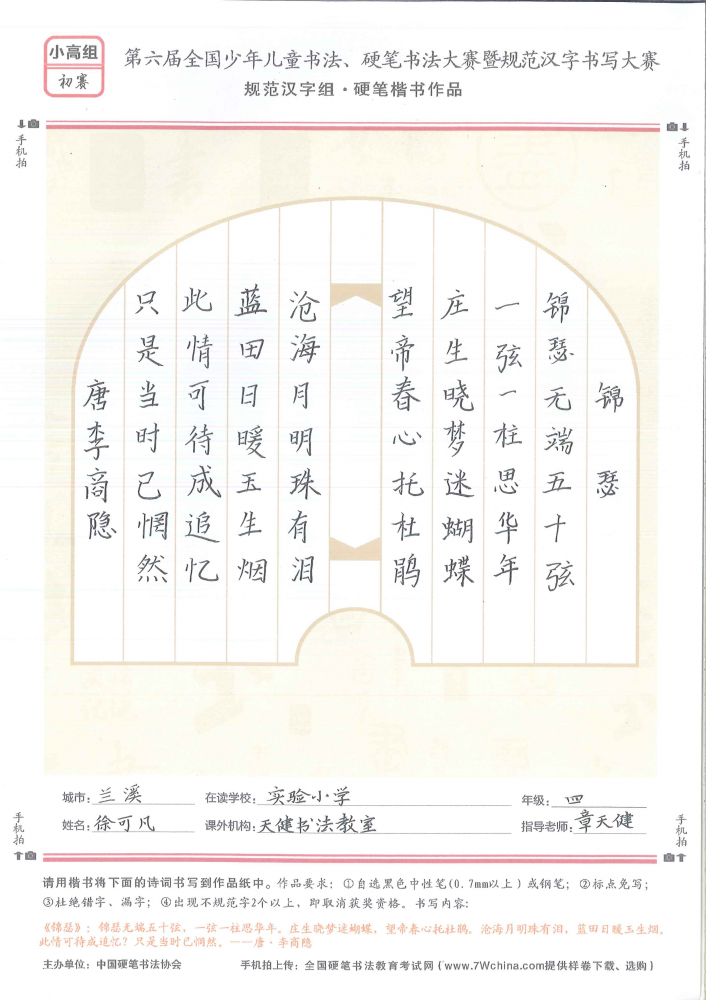 小高组
初赛
第六届全国少年儿童书法、硬笔书法大赛暨规范汉字书写大赛
规范汉字组·硬笔楷书作品
手机拍
手机拍
锦瑟
锦瑟无端五十弦
一弦一柱思华年
庄生晓梦迷蝴蝶
望帝春心托杜鹃
沧海月明珠有泪
蓝田日暖玉生烟
此情可待成追忆
只是当时已惘然
唐李商隐
城市：兰溪 在读学校：实验小学 年级：四
姓名：徐可凡 课外机构：天健书法教室 指导老师：章天健
手机拍
手机拍
请用楷书将下面的诗词书写到作品纸中。作品要求：①自选黑色中性笔(0.7mm以上)或钢笔；②标点免写；
③杜绝错字、漏字；④出现不规范字2个以上，即取消获奖资格。书写内容：
《锦瑟》：锦瑟无端五十弦，一弦一柱思华年。庄生晓梦迷蝴蝶，望帝春心托杜鹃。沧海月明珠有泪，蓝田日暖玉生烟。
此情可待成追忆？只是当时已惘然。——唐·李商隐
主办单位：中国硬笔书法协会 手机拍上传：全国硬笔书法教育考试网（www.7Wchina.com提供样卷下载、选购）